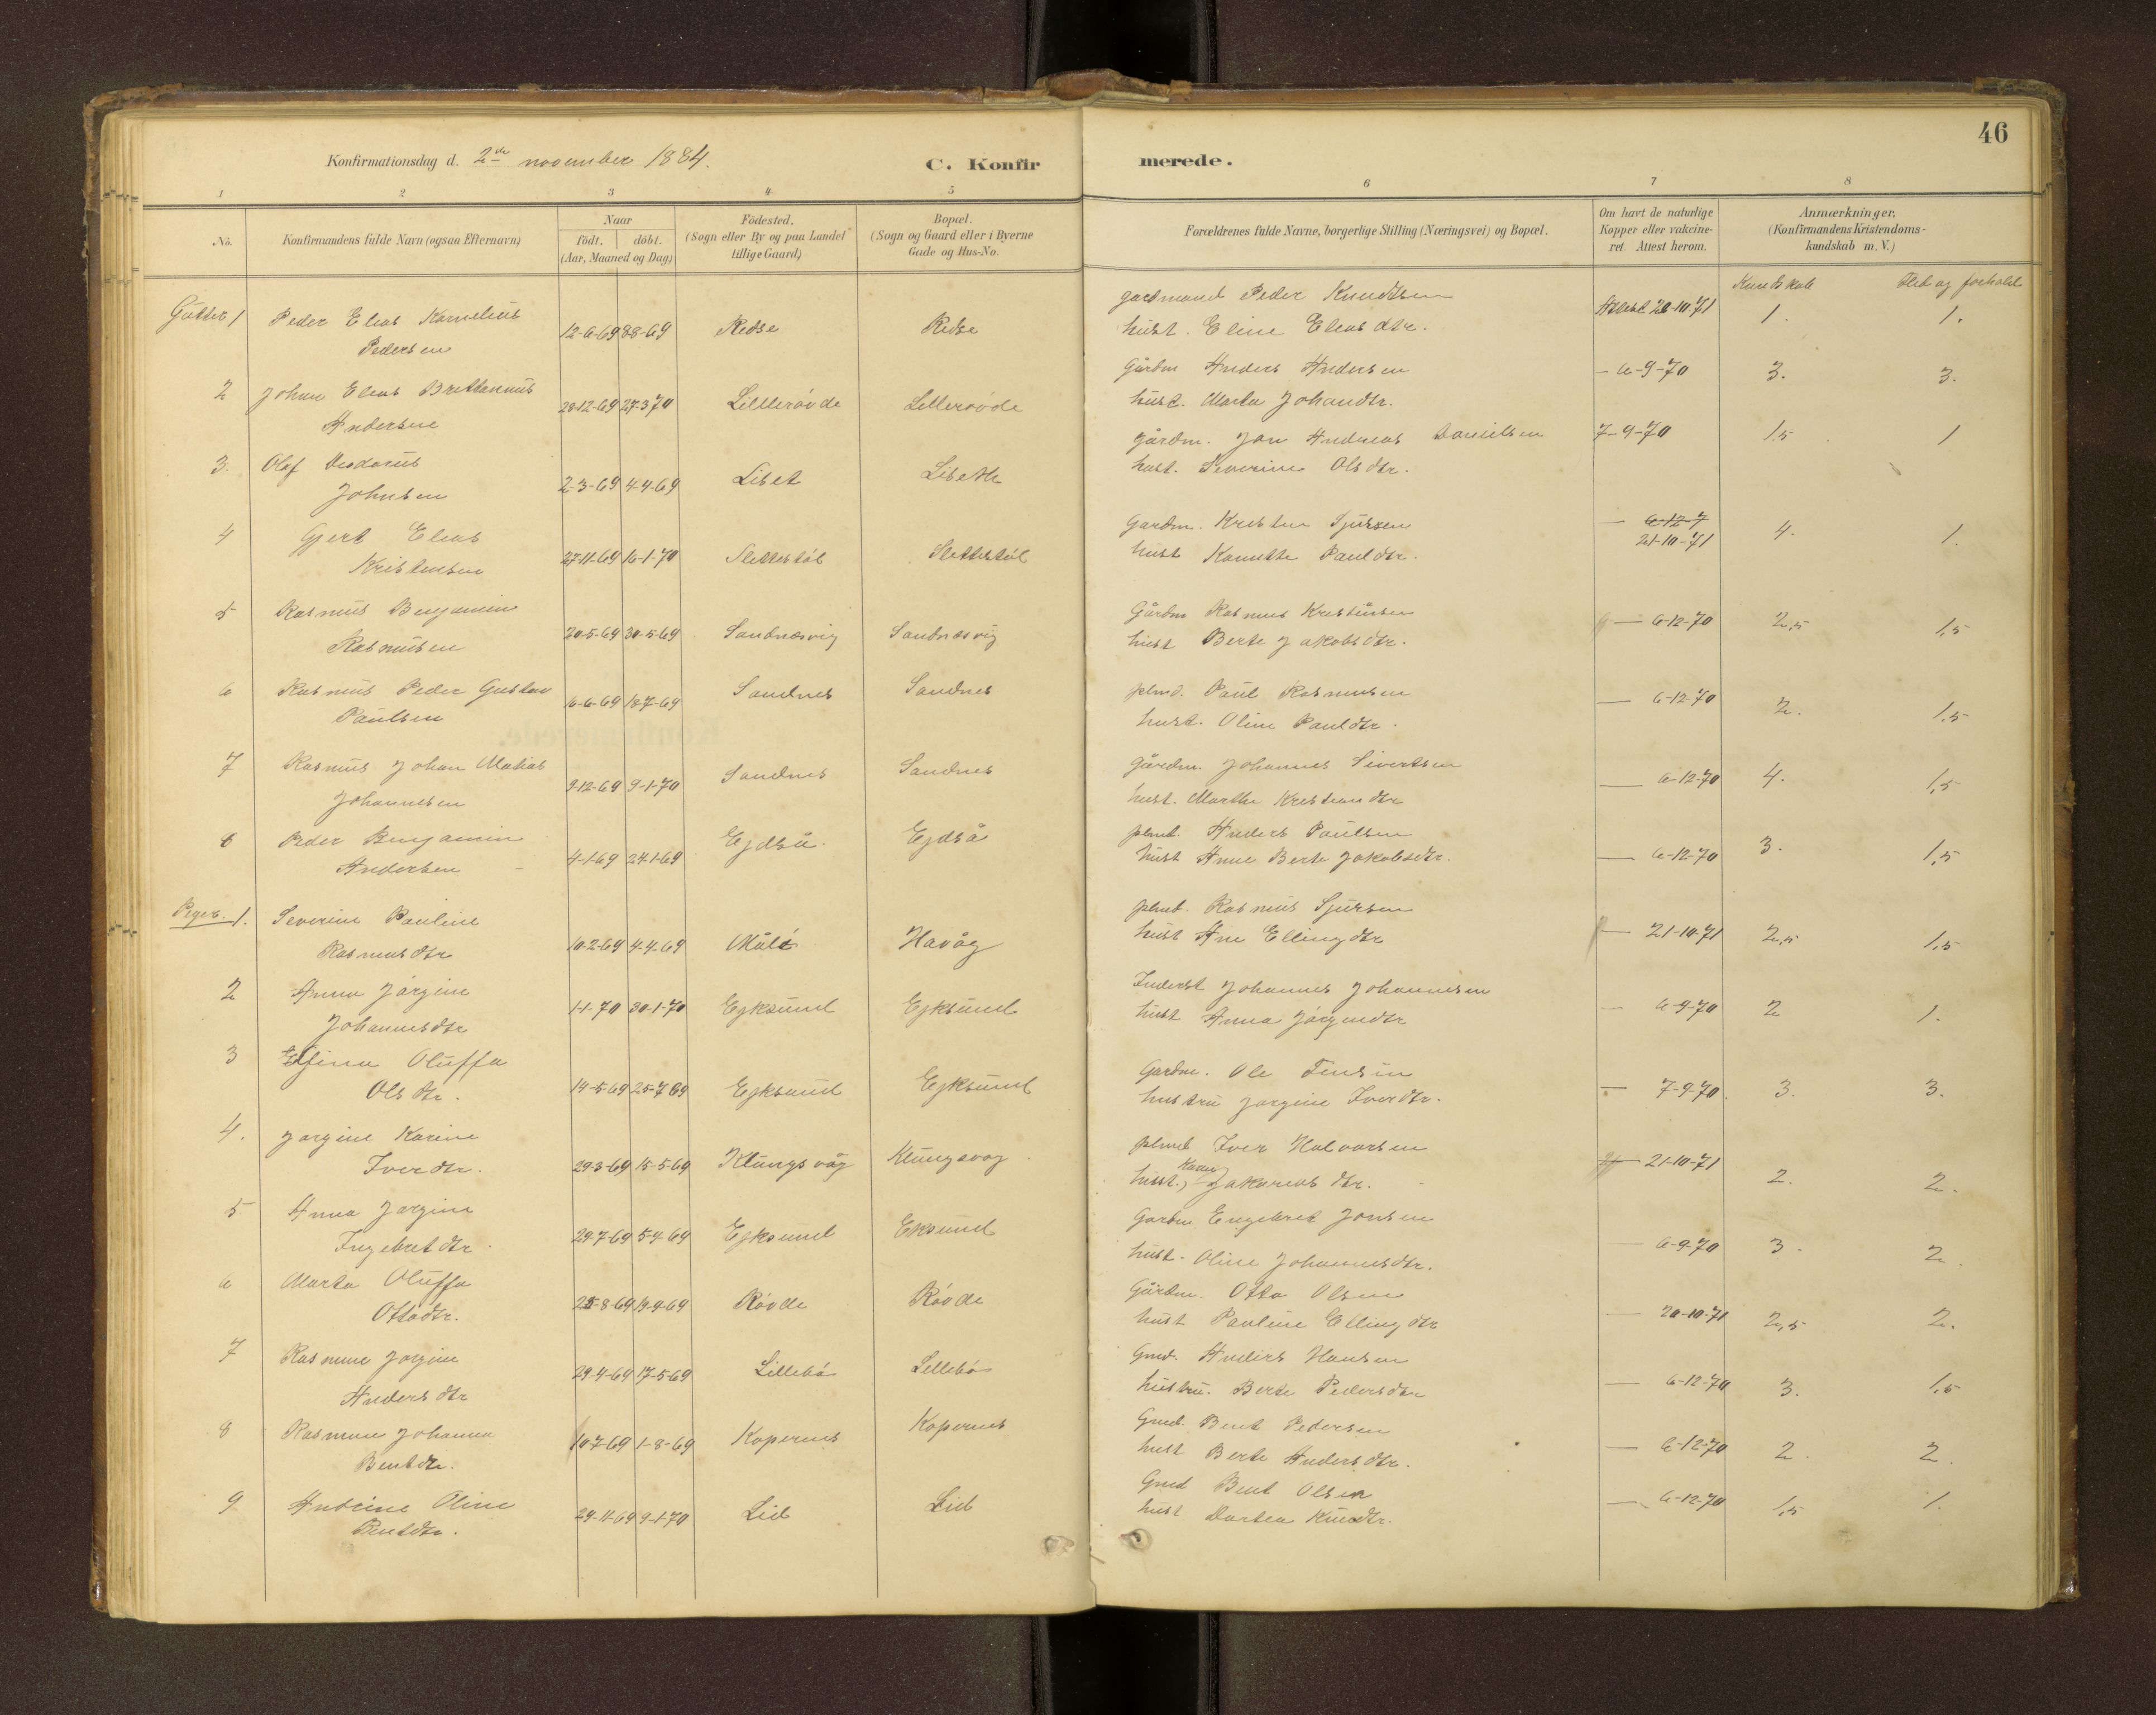 46
Konfirmationsdag d. 2de november 1884.
C. Konfirmerede.
1 2 3 4 5 6 7 8
No. Konfirmandens fulde Navn (ogsaa Efternavn) Naar födt. döbt. (Aar, Maaned og Dag) Födested. (Sogn eller By og paa Landet tillige Gaard) Bopæl. (Sogn og Gaard eller i Byerne Gade og Hus-No. Forældrenes fulde Navne, borgerlige Stilling (Næringsvei) og Bopæl. Om havt de naturlige Kopper eller vakcineret. Attest herom. Anmærkninger. (Konfirmandens Kristendomskundskab m. V.)
Kundskab Flid og forhold
Gutter 1 Peder Elias Kornelius gardmand Peder Knudtsen
Pedersen 12-6-69 8-8-69 Redse Redse hust. Eline Elias dtr. Attest 20-10-71 1. 1.
2 Johan Elias Brittannus Gårdm Anders Andersen
Andersen 28-12-69 27-3-70 Lillerövde Lillerövde hust. Marta Johandtr. - 6-9-70 3. 3.
3. Olaf gårdm. Jon Andreas Danielsen
Johnsen 2-3-69 4-4-69 Liset Liseth hust. Severine Olsdtr. 7-9-70 1.5 1
4 Gjert Elias Gardm. Kristen Sjursen
Kristensen 27-11-69 16-1-70 Slettestöl Slettestöl hust Kanutte Pauldtr. — 6-12-7 21-10-71 4. 1.
5 Rasmus Benjamin Gårdm Rasmus Kristensen
Rasmusen 20-5-69 30-5-69 Sandnæsvig Sandnæsvig hust Berte Jakobsdtr. — 6-12-70 2,5 1,5
6 Rasmus Peder Gustav plmd. Paul Rasmusen
Paulsen 6-6-69 18-7-69 Sandnes Sandnes hust. Oline Pauldtr. — 6-12-70 2. 1,5
7 Rasmus Johan Matias gårdm. Johannes Sivertsen
Johannesen 9-12-69 9-1-70 Sandnes Sandnes hust. Marthe Kristiandtr — 6-12-70 4. 1,5
8 Peder Benjamin plmd. Anders Paulsen
Andersen 4-1-69 24-1-69 Ejdså Ejdså hust Anne Berte Jakobsdtr. — 6-12-70 3. 1,5
Piger. 1. Severine Pauline plmd. Rasmus Sjursen
Rasmusdtr 10-2-69 4-4-69 Håvåg hust Ane Ellingdtr — 21-10-71 2,5 1,5
2 Anna Jörgine Inderst Johannes Johannesen
Johannesdtr 1-1-70 30-1-70 Ejksund Ejksund hust Anna Jörgendtr — 6-9-70 2 1.
3 Oluffa Gardm. Ole
Olsdtr. 14-5-69 25-7-69 Ejksund Ejksund hustru Jörgine Iverdtr. — 7-9-70. 3. 3.
4. Jorgine Karine plmd Iver Halvorsen
Iverdtr. 29-3-69 15-5-69 Klungsvåg Klungsvog hust., Karen Jakariasdtr. — 21-10-71 2. 2.
5 Anna Jorgine Gardm Engebret Jonsen
Ingebretdtr. 29-7-69 5-4-69 Ejksund Eksund hust. Oline Johannesdtr. — 6-9-70 3. 2.
6 Marta Oluffa Gårdm. Otto Olsen
Ottodtr. 25-8-69 19-9-69 Rövde Rövde hust Pauline Ellingdtr — 20-10-71 2,5 2.
7 Rasmine Jorgine Gmd. Anders Hansen
Andersdtr 29-4-69 17-5-69 Lillebö Lillebö hustru. Berte Pedersdtr — 6-12-70 3. 1,5
8 Rasmine Johanna Gmd. Bent Pedersen
Bentdtr. 10-7-69 1-8-69 Kopernes Kopernes hust Berte Andersdtr. — 6-12-70 2. 2.
9 Andrine Oline Gmd Bent Olsen
Bentdtr. 29-11-69 9-1-70 Lid Lid hust Dortea Knudtr. — 6-12-70 1,5 1.